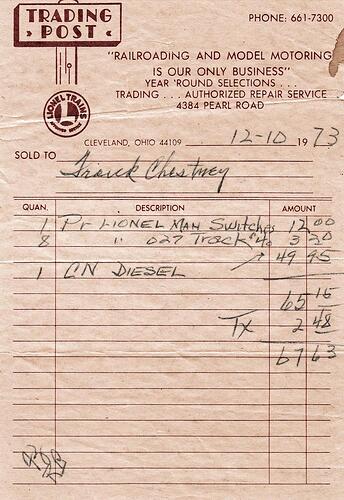 TRADING
POST
PHONE: 661-7300
"RAILROADING AND MODEL MOTORING
IS OUR ONLY BUSINESS"
YEAR 'ROUND SELECTIONS . . .
TRADING . . . AUTHORIZED REPAIR SERVICE . .
4384 PEARL ROAD
LIONEL TRAINS
CLEVELAND, OHIO 44109 12-10 1973
SOLD TO Frank Chestney
QUAN. DESCRIPTION AMOUNT
1 Pr LIONEL MAN Switches 12 00
8 " 027 Track 40 3 20
1 GN DIESEL 49 95
65 15
Tx 2 48
67 63